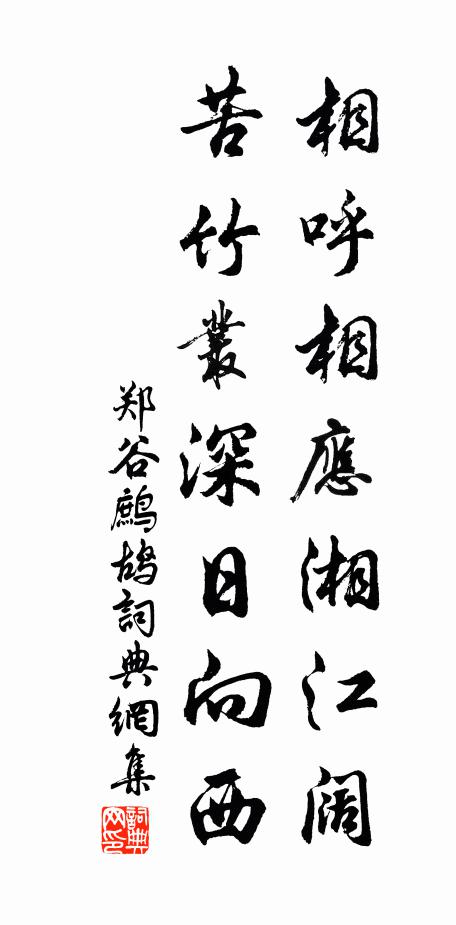 相呼相應湘江阔
苦竹叢深日向西
郑谷鷓鴣詞典網集
詞典網印